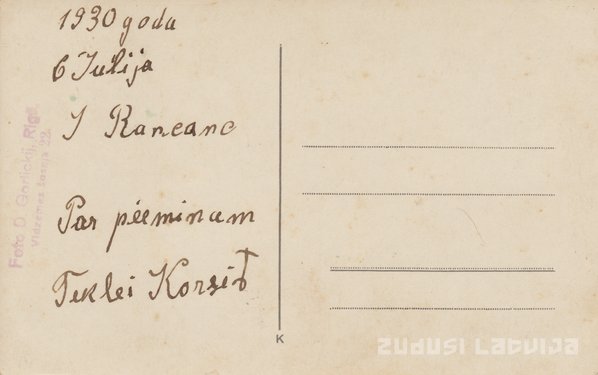 1930 godu
6 Julija
J Rancane
Par pieminam
Teklei
Foto D. Gorlickij, Rīgā
Vidzemes šoseja 22.
K
zudusi Latvija